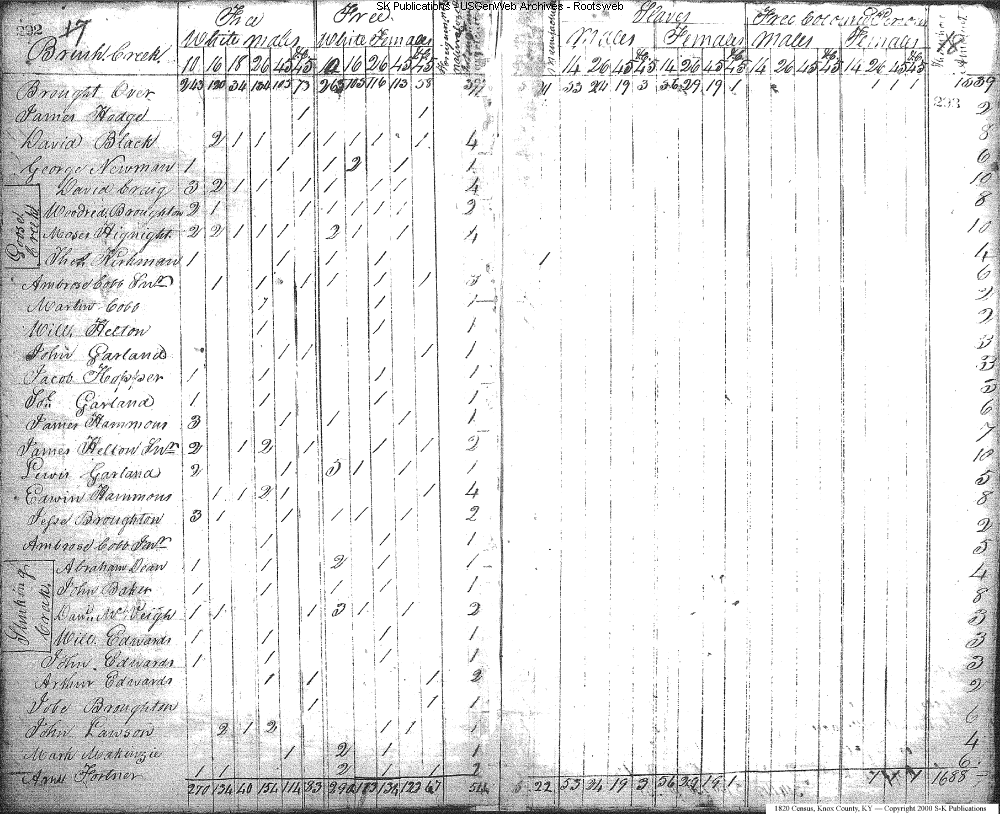 SK Publications - USGenWeb Archives - Rootsweb
292 17 Free Free Slaves Free Colored Persons 18
White Males White Females Males Females Males Females
Brush Creek 10 16 18 26 45 45 10 16 26 45 45 14 26 45 45 14 26 45 45 14 26 45 45 14 26 45 45
Brought Over 243 120 34 134 105 73 265 105 116 113 58 21 53 24 19 3 56 29 19 1 1 1 1 1539
293
James Hodge 1 1 2
David Black 2 1 1 1 1 1 1 1 4 8
George Newman 1 1 1 2 1 1 6
David Craig 3 2 1 1 1 1 1 1 4 10
Goose Creek
Woodred Broughton 2 1 1 1 1 1 1 2 8
Moses Hignight 2 2 1 1 1 2 1 1 4 10
Thos Kirkman 1 1 1 1 1 1 4
Ambrose Cobb Snr 1 1 1 1 1 1 1 3 6
Martin Cobb 1 1 1 2
Will Helton 1 1 1 2
John Garland 1 1 1 1 3
Jacob Hopper 1 1 1 1 3
Jon Garland 1 1 1 1 3
James Hammons 3 1 1 1 1 6
James Helton Snr 2 1 2 1 1 1 2 7
Lewis Garland 2 1 3 1 1 1 10
Edwin Hammons 1 1 2 1 1 4 5
Jesse Broughton 3 1 1 1 1 1 2 8
Ambrose Cobb Jnr 1 1 1 2
Stinking Creak
Abraham Dean 1 1 2 1 1 5
John Baker 1 1 1 1 1 4
Danl McVeigh 1 1 1 3 1 1 2 8
Will Edwards 1 1 1 1 3
John Edwards 1 1 1 1 3
Arthur Edwards 1 1 1 2 3
Jobe Broughton 1 1 1 2
John Lawson 2 1 2 1 1 1 6
Mark Makenzie 1 2 1 1 4
Fortner 1 1 2 1 1 6
270 134 40 154 114 83 123 67 544 22 53 24 19 3 56 29 19 1 1 1 1 1688
1820 Census, Knox County, KY — Copyright 2000 S-K Publications